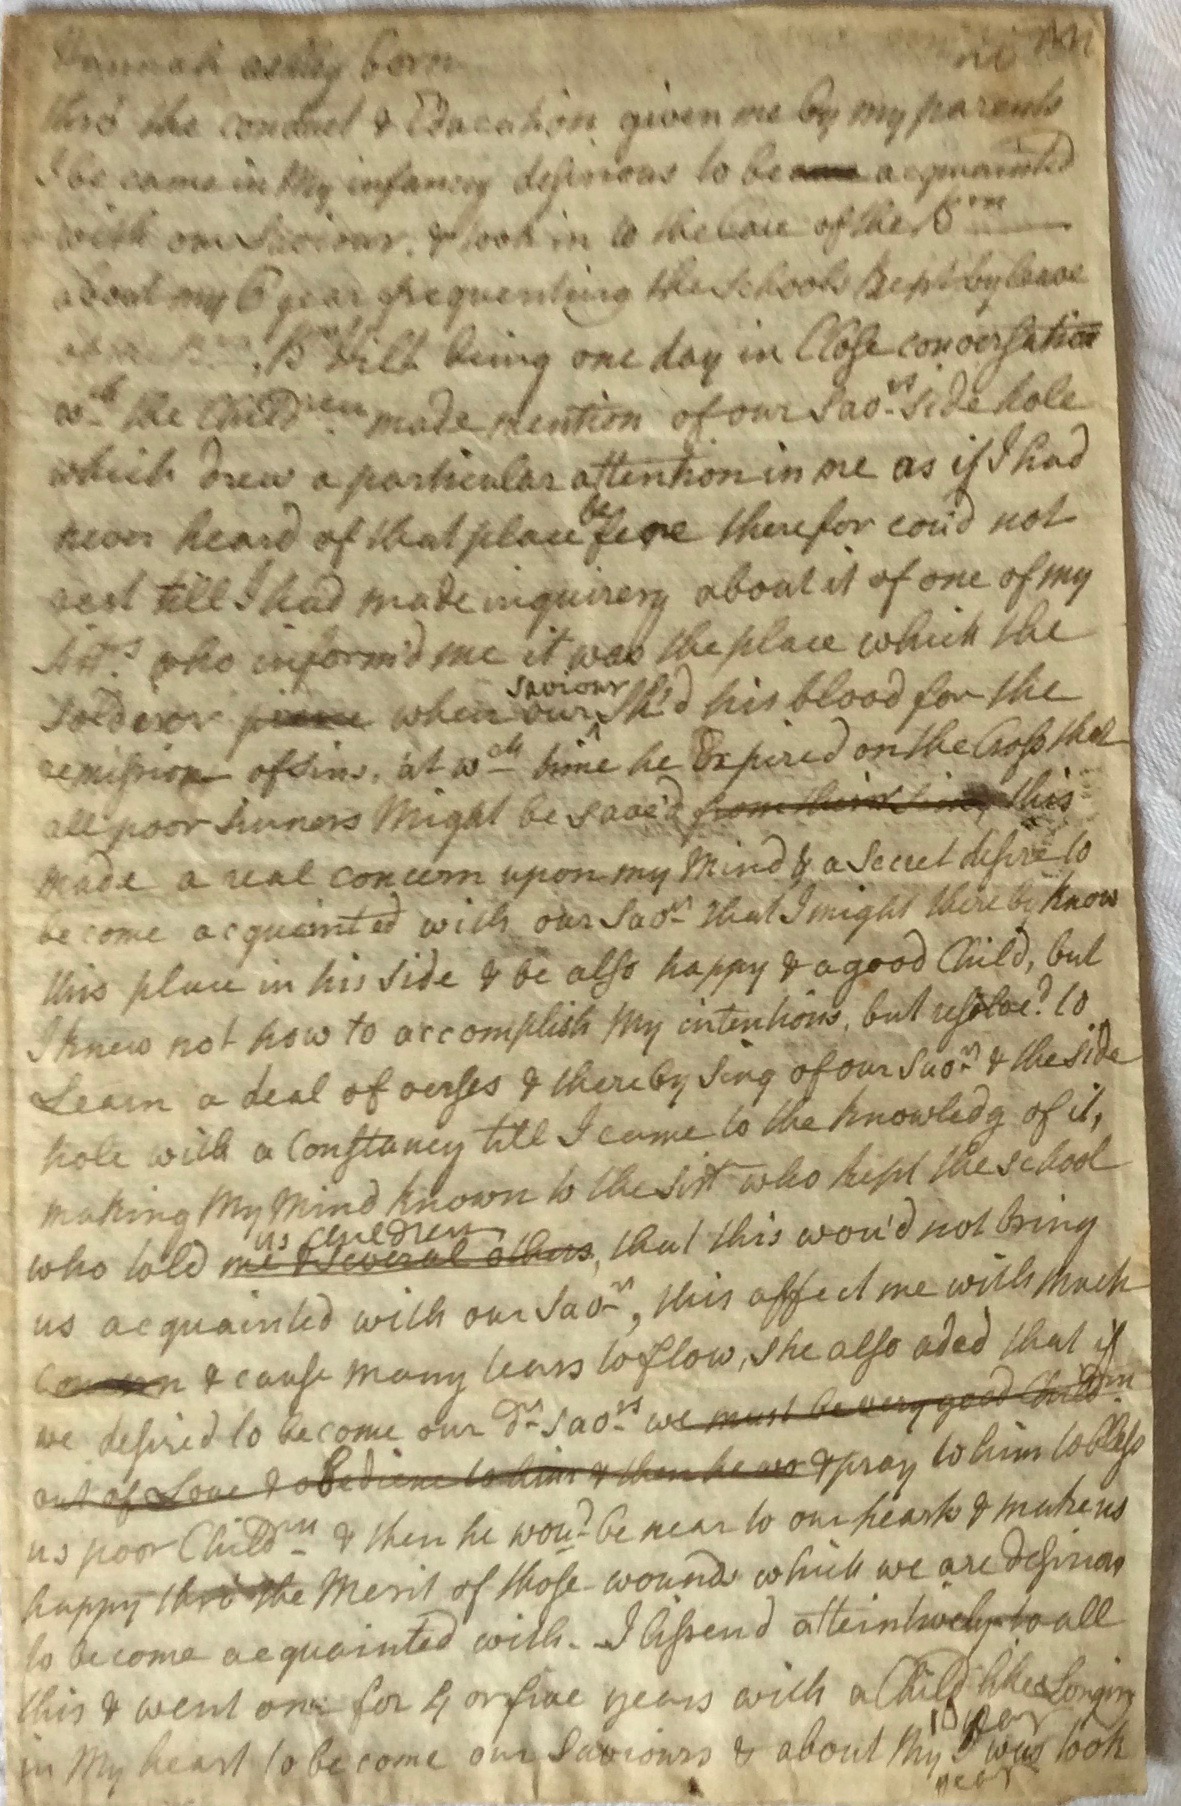 Hannah born
thro' the conduct & Education given me by my parents
I became in My infancy desirous to be acquainted
with our Saviour. & took in to the Care of the Brn
about my 6 year frequenting the schools kept by leave
being one day in Close conversation
wth the Childn.ren made mention of our Savrs side hole
which drew a particular attention in me as if I had
never heard of that place before therefor cou'd not
rest till I had made inquirery about it of one of my
Sistrs who inform'd me it was the place which the
Solderor when our Saviour Sh'd his blood for the
remission of sins. at wch time he Expired on the Cross that
all poor sinners Might be save'd from their sins, this
made a real concern upon my Mind & a secret desire to
become acquainted with our Savr that I might thereby know
this place in his side & be also happy & a good Child, but
I knew not how to accomplish My intentions, but resolve'd to
Learn a deal of verses & thereby Sing of our Savr & the side
hole with a Constancy till I came to the knowledg of it,
making My Mind known to the sistr who kept the school
who told me & several others us children, that this wou'd not bring
us acquainted with our Savr, this affect me with much
Concern & cause many tears to flow, She also aded that if
we desired to become our dr Savrs we must be very good Childrn
out of Love & obedience to him & then he wo & pray to him to bless
us poor Childrn & then he wou'd be near to our hearts & make us
happy thro' the Merit of those wounds which we are desirous
to become acquainted with - I lissend atteintively to all
this & went on for 4 or five years with a Child like Longing
in My heart to become our Saviours & about My 10 year was took
near